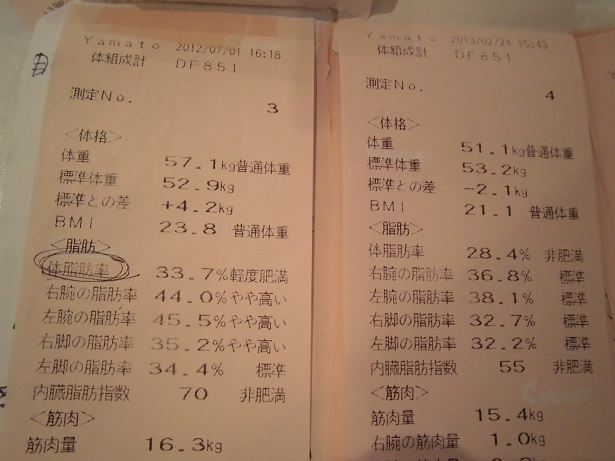 Yamato 2012/07/01 16:18
体組成計 DF851
測定No. 3
<体格>
体重 57.1kg普通体重
標準体重 52.9kg
標準との差 +4.2kg
BMI 23.8 普通体重
<脂肪>
体脂肪率 33.7%軽度肥満
右腕の脂肪率 44.0%やや高い
左腕の脂肪率 45.5%やや高い
右脚の脂肪率 35.2%やや高い
左脚の脂肪率 34.4% 標準
内臓脂肪指数 70 非肥満
<筋肉>
筋肉量 16.3kg
Yamato 2013/02/24 15:43
体組成計 DF851
測定No. 4
<体格>
体重 51.1kg普通体重
標準体重 53.2kg
標準との差 -2.1kg
BMI 21.1 普通体重
<脂肪>
体脂肪率 28.4% 非肥満
右腕の脂肪率 36.8% 標準
左腕の脂肪率 38.1% 標準
右脚の脂肪率 32.7% 標準
左脚の脂肪率 32.2% 標準
内臓脂肪指数 55 非肥満
<筋肉>
筋肉量 15.4kg
右腕の筋肉量 1.0kg